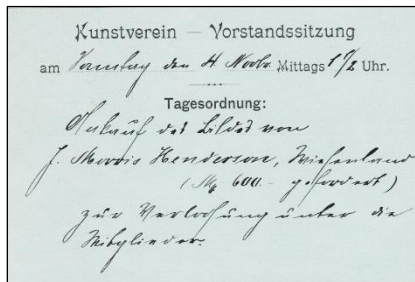 Kunstverein — Vorstandssitzung
am Sonntag den 4. Novbr. Mittags 1 1/2 Uhr.
Tagesordnung:
Ankauf des Bildes von
J. Morris Henderson, Wiesenland
(Mk 600.- gefordert)
zur Verloosung unter die
Mitglieder.